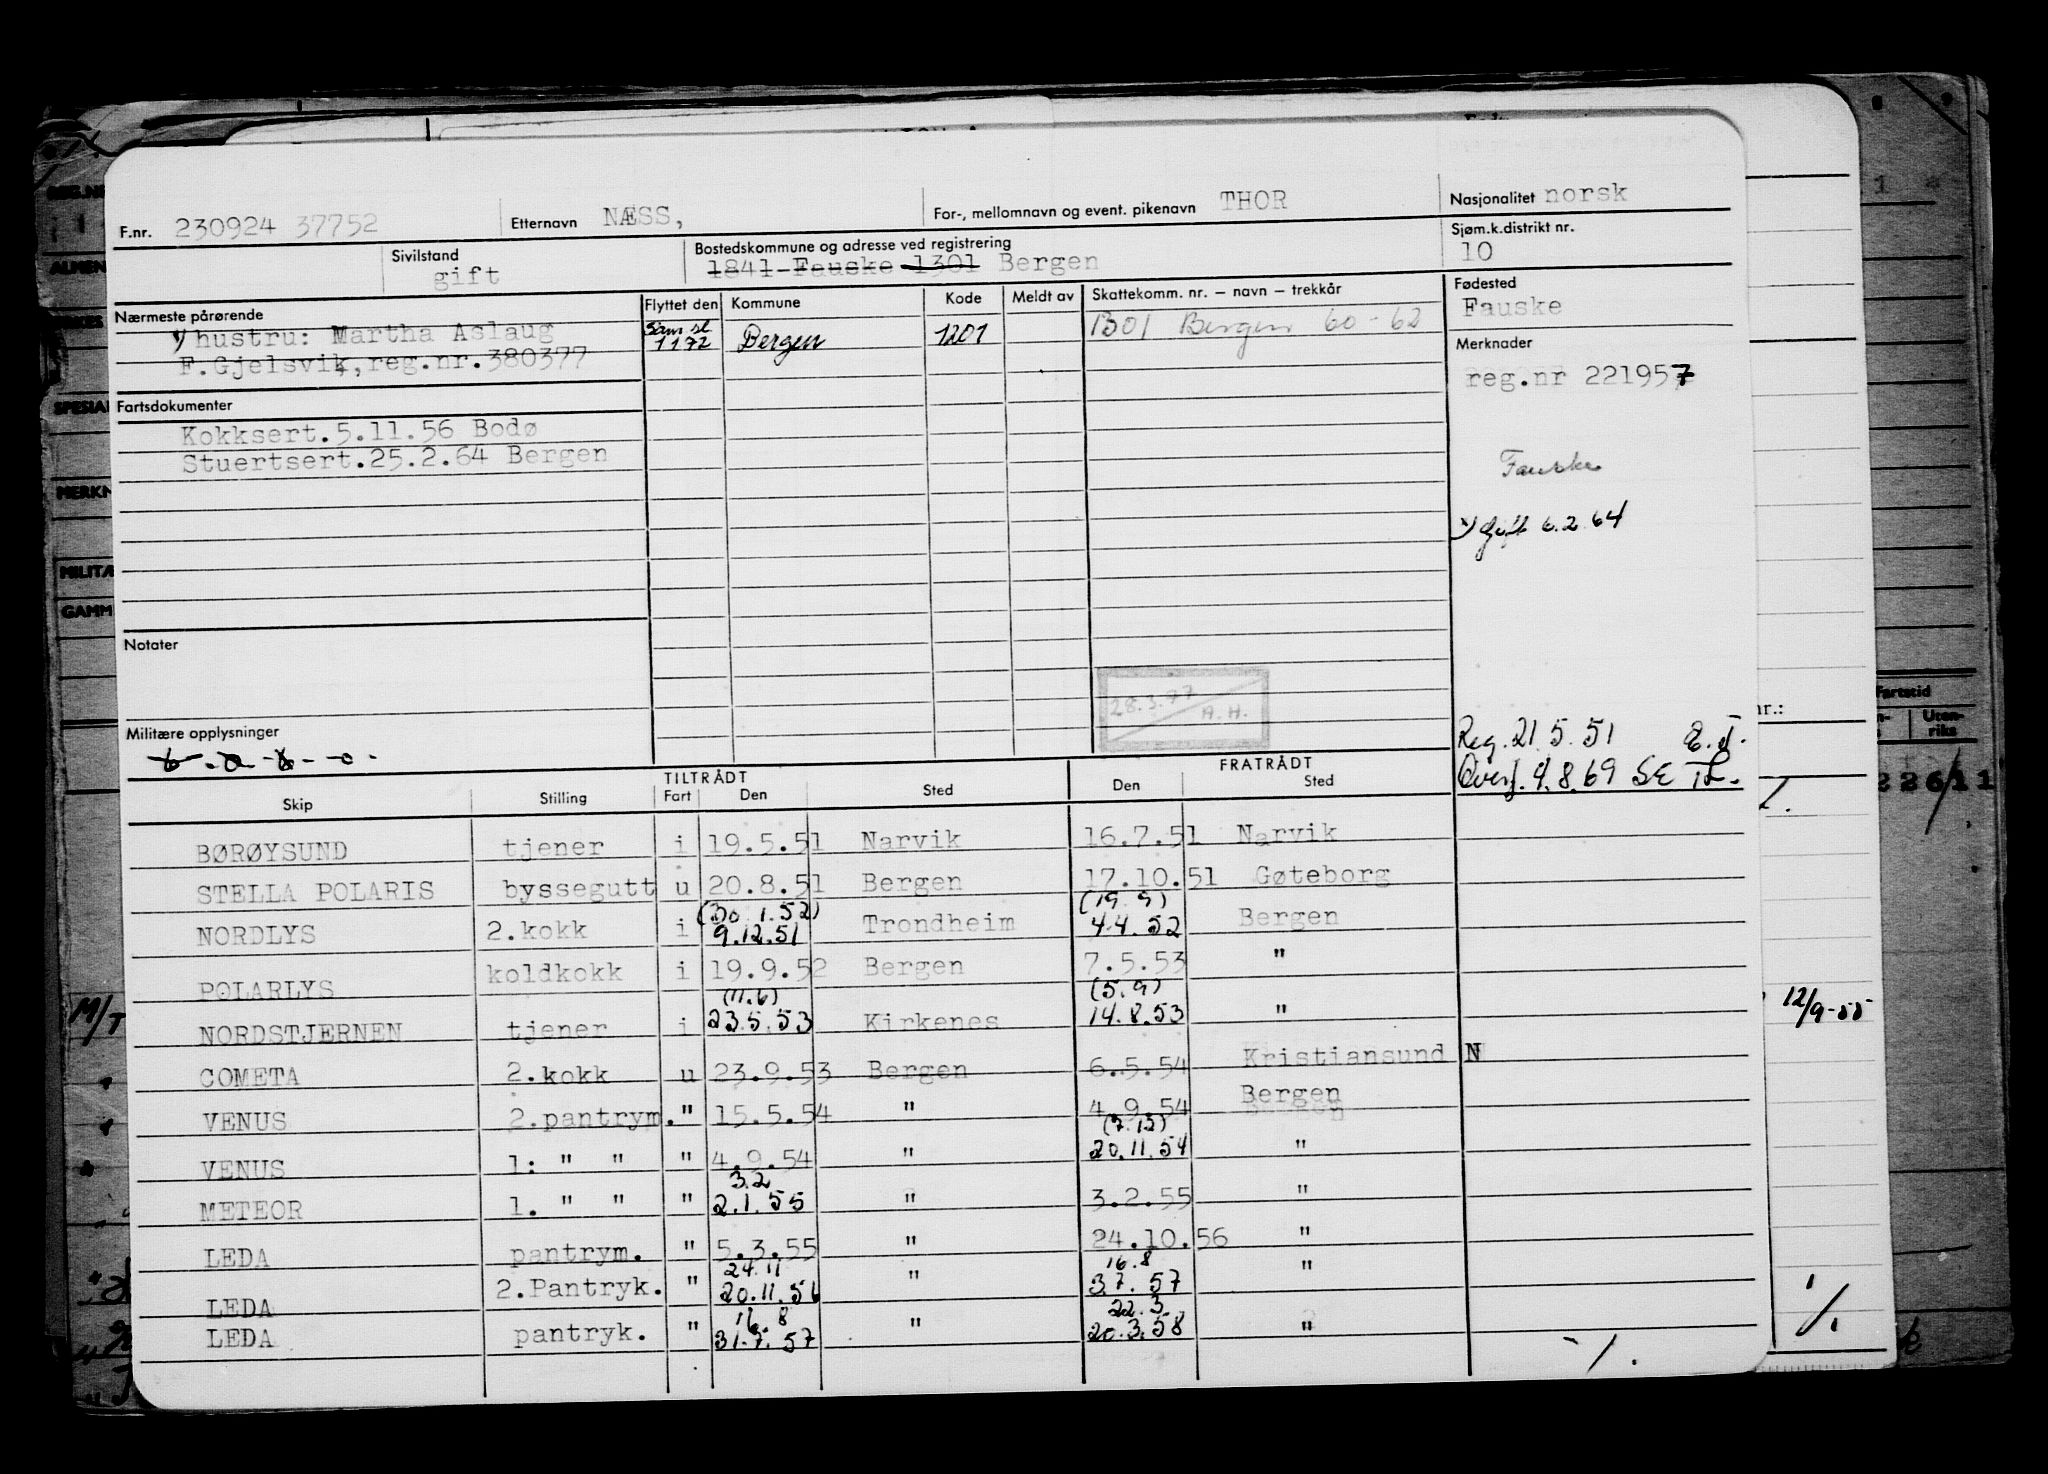 F.nr. 230924 37752 Etternavn NÆSS, For-, mellomnavn og event. pikenavn THOR Nasjonalitet norsk
Sivilstand gift Bostedskommune og adresse ved registrering 1841 Fauske 1301 Bergen Sjøm.k.distrikt nr. 10
Nærmeste pårørende Flyttet den Kommune Kode Meldt av Skattekomm. nr. – navn – trekkår Fødested
hustru: Martha Aslaug Bergen 1201 1301 Bergen 60-62 Fauske
F.Gjelsvik, reg.nr.380377 1172 Merknader
reg.nr 221957
Fartsdokumenter
Kokksert.5.11.56 Bodø
Stuertsert.25.2.64 Bergen Fauske
gift 6.2.64
Notater
28.3.97 A.H.
Militære opplysninger Reg. 21.5.51 E.J.
Overf. 4.8.69 SE
TILTRÅDT FRATRÅDT
Skip Stilling Fart Den Sted Den Sted
BØRØYSUND tjener i 19.5.51 Narvik 16.7.51 Narvik
STELLA POLARIS byssegutt u 20.8.51 Bergen 17.10.51 Gøteborg
(30.1.52) (19.9)
NORDLYS 2.kokk i 9.12.51 Trondheim 4.4.52 Bergen
POLARLYS koldkokk i 19.9.52 Bergen 7.5.53 "
(11.6) (5.9)
NORDSTJERNEN tjener i 23.5.53 Kirkenes 14.8.53 "
COMETA 2.kokk u 23.9.53 Bergen 6.5.54 Kristiansund N
VENUS 2.pantrym. " 15.5.54 " 4.9.54 Bergen
(7.12)
VENUS 1: " " " 4.9.54 " 20.11.54 "
3.2
METEOR 1. " " " 2.1.55 " 3.2.55 "
LEDA pantrym. " 5.3.55 " 24.10.56 "
24.11 16.8
LEDA 2.Pantryk. " 20.11.56 " 3.7.57 "
16.8 22.3
LEDA pantryk. " 31.7.57 " 20.3.58 "
Fartstid
Uten-
riks
226/11
nr.:
M/T
12/9-55